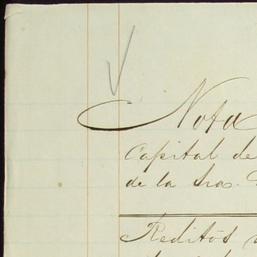 Nota
Capital de
de la Sra.
Reditos